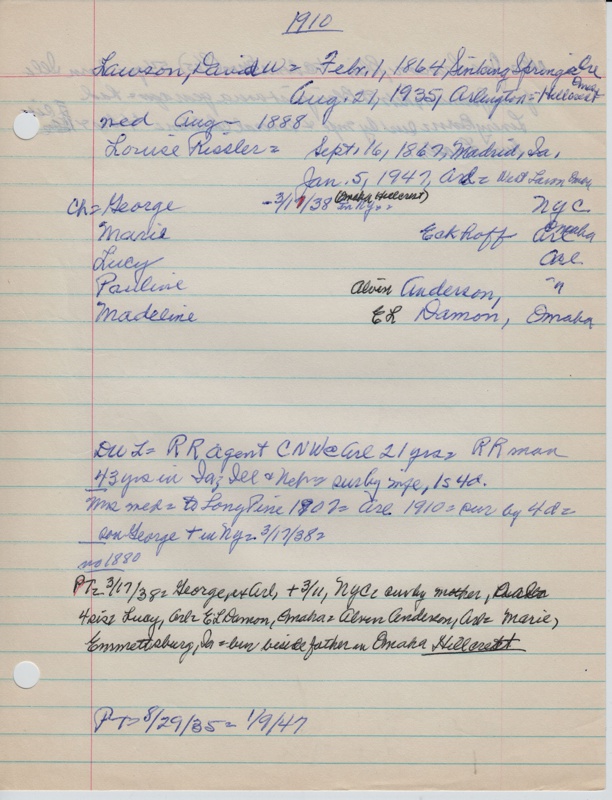 1910
Lawson, David W = Febr. 1, 1864, Sinking Springs
Aug. 21, 1935, Arlington = Hillcrest Omaha
med Aug - 1888
Louise Rissler = Sept. 16, 1867, Madrid, Ia.
Jan. 5, 1947, Arl =
Ch = George - 3/17/38 (Omaha Hillcrest) in Ny = NYC
Marie Eckhoff Omaha
Lucy Arl.
Pauline Alvin Anderson, "
Madeline EL Damon, Omaha
DWL = RR agent CNW @ Arl 21 yrs = RR man
43 yrs in Ia, Ill & Nebr = sur by wife, 1s 4d.
Mrs med = to Long Pine = Arl 1910 = sur by 4d =
son George + in Ny = 3/17/38 =
no 1880
PT = 3/17/38 = George, ex Arl, + 3/11, NYC = sur by mother,
4 sis = Lucy, Arl = EL Damon, Omaha = Alven Anderson, Arl = Marie,
Emmettsburg, Ia = bur beside father in Omaha Hillcrest
PT = 8/29/35 = 1/9/47